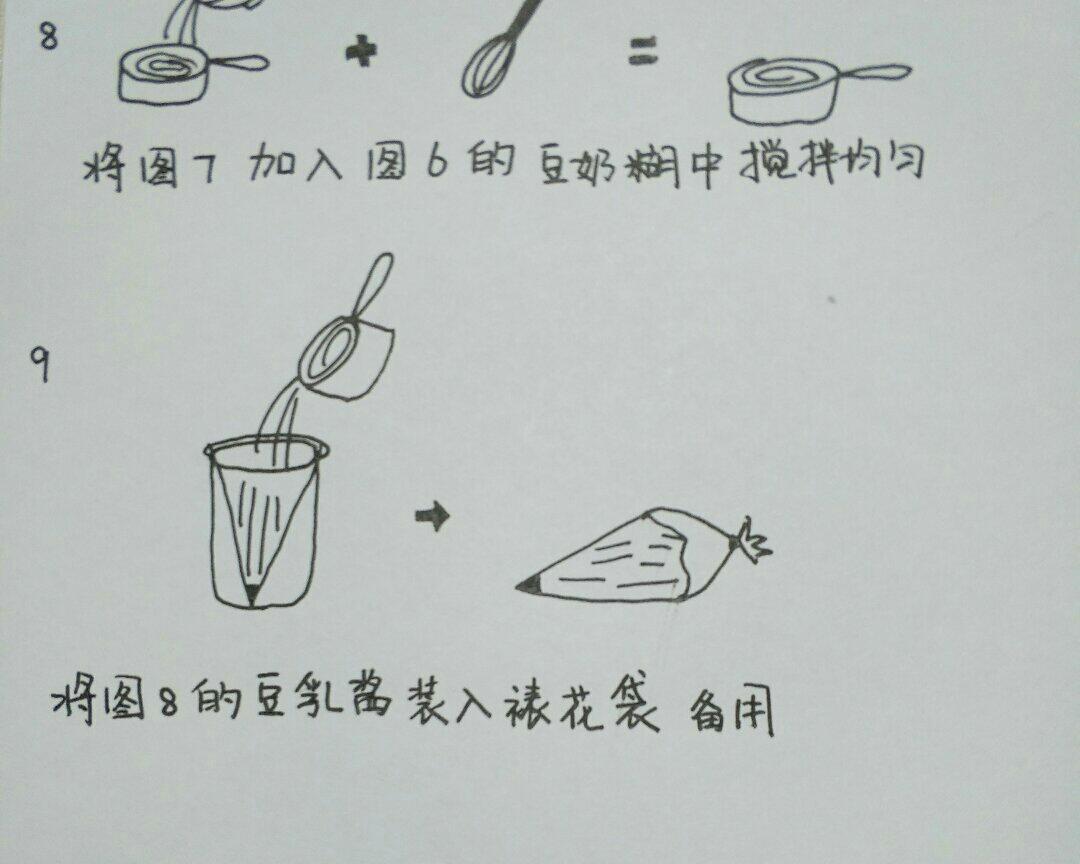 8
+ =
将图7加入图6的豆奶糊中搅拌均匀
9
将图8的豆乳酱装入裱花袋备用